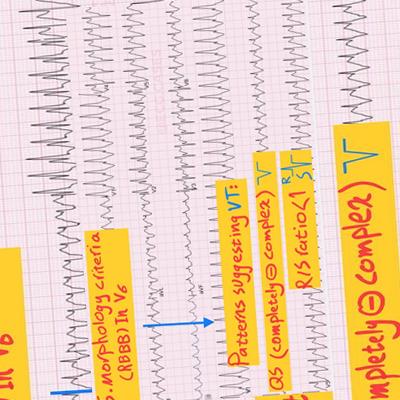 In V6
S.morphology criteria
(RBBB) In V6
Patterns suggesting VT:
QS (completely ⊖ complex)
R
S
R/S ratio<1
mpletely ⊖ complex)